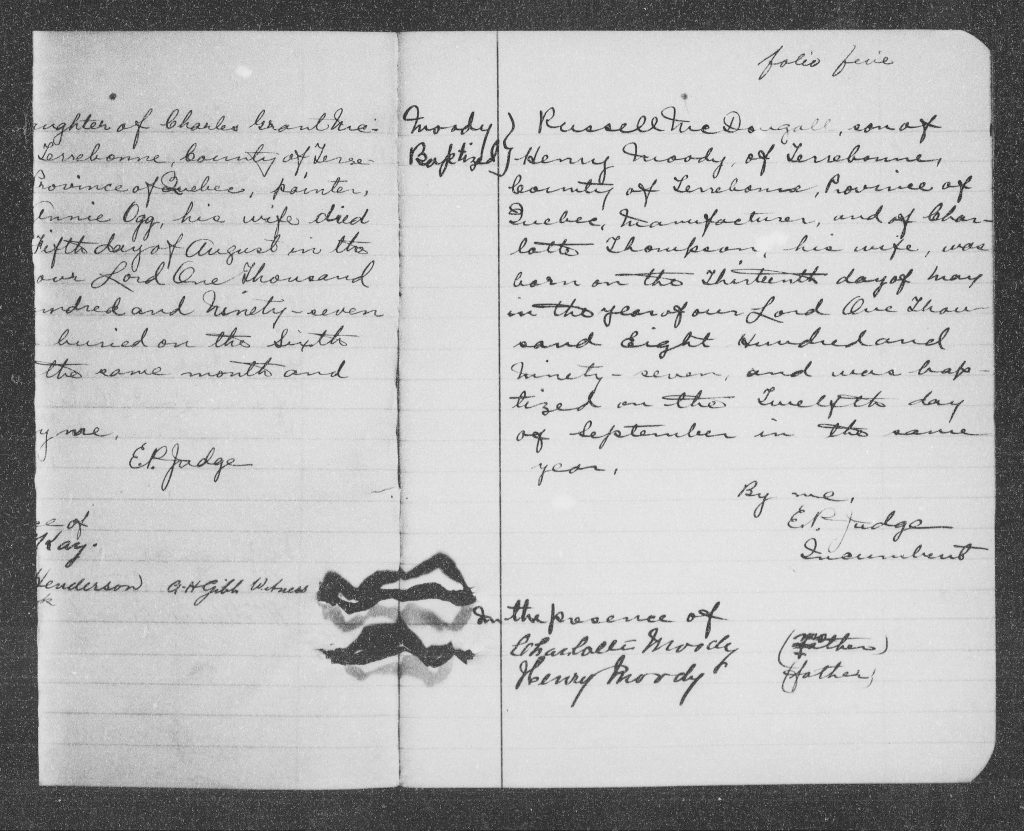 folio five
ughter of Charles Grant Mc-
Terrebonne, County of Terre-
Province of Quebec, painter,
Annie Ogg, his wife died
Fifth day of August in the
our Lord One Thousand
undred and Ninety-seven
buried on the Sixth
the same month and
y me,
E.P. Judge
ce of
Kay.
Henderson A-H Gibb Witness
k
Moody
Baptized
Russell McDougall, son of
Henry Moody, of Terrebonne,
County of Terrebonne, Province of
Quebec, Manufacturer, and of Char-
lotte Thompson, his wife, was
born on the Thirteenth day of May
in the year of our Lord One Thou-
sand Eight Hundred and
Ninety-seven, and was bap-
tized on the Twelfth day
of September in the same
year.
By me,
E.P. Judge
Incumbent
In the presence of
Charlotte Moody (mother)
Henry Moody (father)